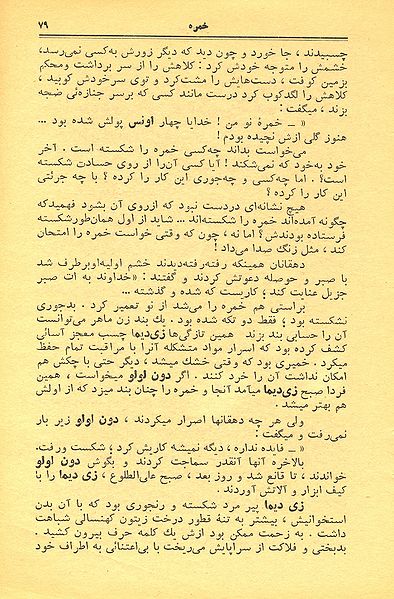 خمره ۷۹
چسبیدند ، جا خورد و چون دید که دیگر زورش به‌کسی نمی‌رسد،
خشمش را متوجه خودش کرد : کلاهش را از سر برداشت ومحکم
بزمین کوفت ، دست‌هایش را مشت‌کرد و توی سرخودش کوبید ،
کلاهش را لگدکوب کرد درست مانند کسی که برسر جنازه‌ئی ضجه
بزند ، میگفت :
« – خمرهٔ نو من ! خدایا چهار اونس پولش شده بود ...
هنوز گلی ازش نچیده بودم !
می‌خواست بداند چه‌کسی خمره را شکسته است . آخر
خود به‌خود که نمی‌شکند ! آیا کسی آن‌را از روی حسادت شکسته
است؟ . اما چه‌کسی و چه‌جوری این کار را کرده ؟ با چه جرئتی
این کار را کرده ؟
هیچ نشانه‌ای دردست نبود که ازروی آن بشود فهمیدکه
چگونه آمده‌اند خمره را شکسته‌اند ... شاید از اول همان‌طورشکسته
فرستاده بودندش؟ اما نه ، چون که وقتی خواست خمره را امتحان
کند ، مثل زنگ صدا می‌داد !
دهقانان همینکه رفته‌رفته‌دیدند خشم اولیه‌اوبرطرف شد
با صبر و حوصله دعوتش کردند و گفتند : «خداوند به ات صبر
جزیل عنایت کند ؛ کاریست که شده و گذشته ...
براستی هم خمره را می‌شد از نو تعمیر کرد . بدجوری
نشکسته بود ؛ فقط دو تکه شده بود . یک بند زن ماهر می‌توانست
آن را حسابی بند بزند همین تازگی‌ها زی‌دیما چسب معجز آسائی
کشف کرده بود که اسرار مواد متشکله آنرا با مراقبت تمام حفظ
میکرد . خمیری بود که وقتی خشک میشد ، دیگر حتی با چکش هم
امکان نداشت آن را خرد کنند . اگر دون لولو میخواست ، همین
فردا صبح زی‌دیما میآمد آنجا و خمره را چنان بند میزد که از اولش
هم بهتر میشد .
ولی هر چه دهقانها اصرار میکردند ، دون لولو زیر بار
نمی‌رفت و میگفت :
« – فایده نداره ، دیگه نمیشه کاریش کرد ؛ شکست ورفت.
بالاخره آنها آنقدر سماجت کردند و بگوش دون لولو
خواندند ، تا قانع شد و روز بعد ، صبح علی‌الطلوع ، زی دیما را با
کیف ابزار و آلاتش آوردند .
زی دیما پیر مرد شکسته و رنجوری بود که با آن بدن
استخوانیش ، بیشتر به تنهٔ قطور درخت زیتون کهنسالی شباهت
داشت . به زحمت ممکن بود ازش یك کلمه حرف بیرون کشید .
بدبختی و فلاکت از سراپایش می‌ریخت با بی‌اعتنائی به اطراف خود